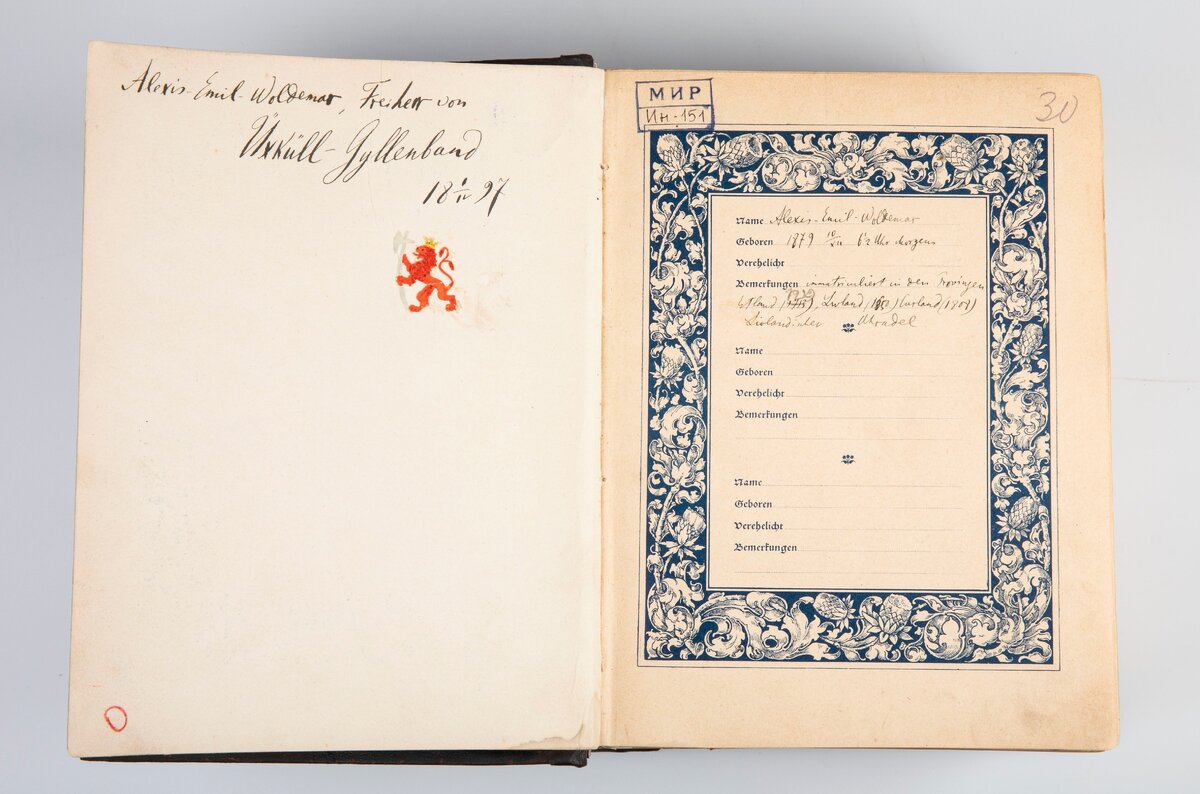 Alexis-Emil-Woldemar, Freiherr von
Üxküll-Gyllenband
18 1/11 97
МИР
Ин-151
30
Name Alexis-Emil-Woldemar
Geboren 1879 Uhr Morgens
Verehelicht
Bemerkungen immatriculiert in den Provinzen
Estland, Livland, Curland
Uradel
Name
Geboren
Verehelicht
Bemerkungen
Name
Geboren
Verehelicht
Bemerkungen